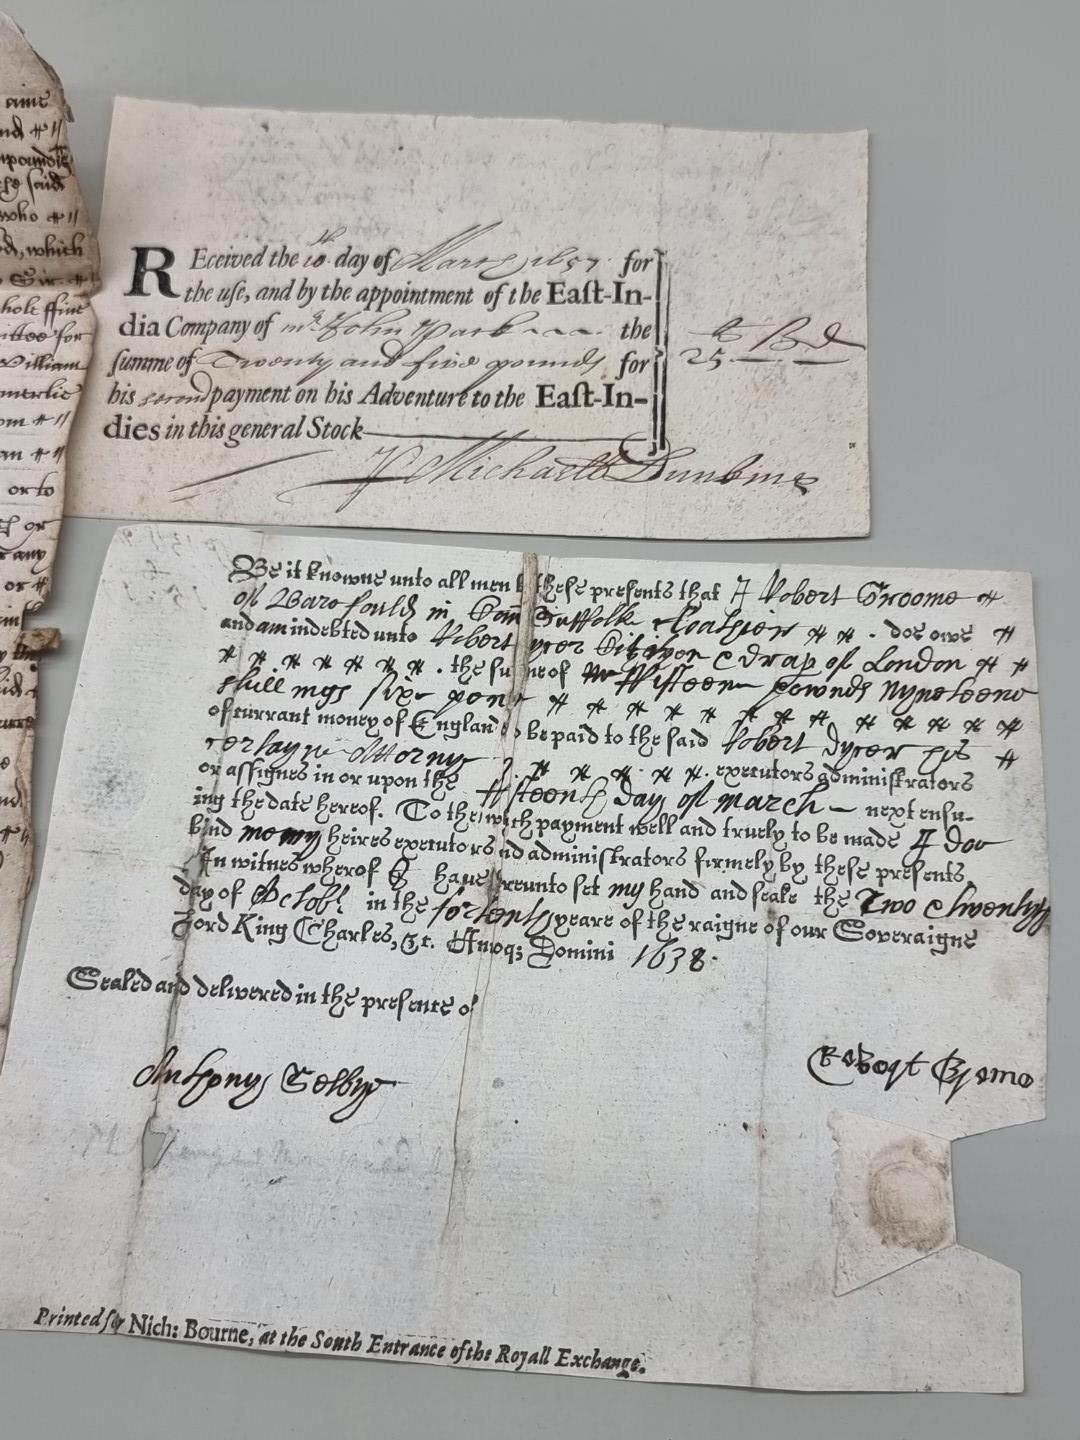 aine
and
mpoundie
the said
who
, which
Sir
hole ffine
ittee for
William
an
or to
or
any
or
REceived the 16th day of March 1657 for
the use, and by the appointment of the East-In-
dia Company of mr. John Park the
summe of Twenty and five pounds for
his second payment on his Adventure to the East-In-
dies in this general Stock
25
Michaell Dunkin
Be it knowne unto all men by these presents that I Robert Groome
of in Com Suffolk Cloathier doe owe
and am indebted unto Robert Dyer Citizen & drap of London
the summe of ffifteene pownds Nyneteene
shillings six pence
of currant money of England to be paid to the said Robert Dyer his
certayne Attorny executors administrators
or assignes in or upon the ffifteenth day of march next ensu-
ing the date hereof. To the which payment well and truely to be made I doe
bind me my heires executors and administrators firmely by these presents,
In witnes wherof I have hereunto set my hand and seale the Two & twentyth
day of Octobr. in the fortenth yeare of the raigne of our Soveraigne
Lord King Charles, &c. Annoq; Domini 1638.
Sealed and delivered in the presence of
Anthony Selbye
Robert Grome
Printed for Nich: Bourne, at the South Entrance of the Royall Exchange.